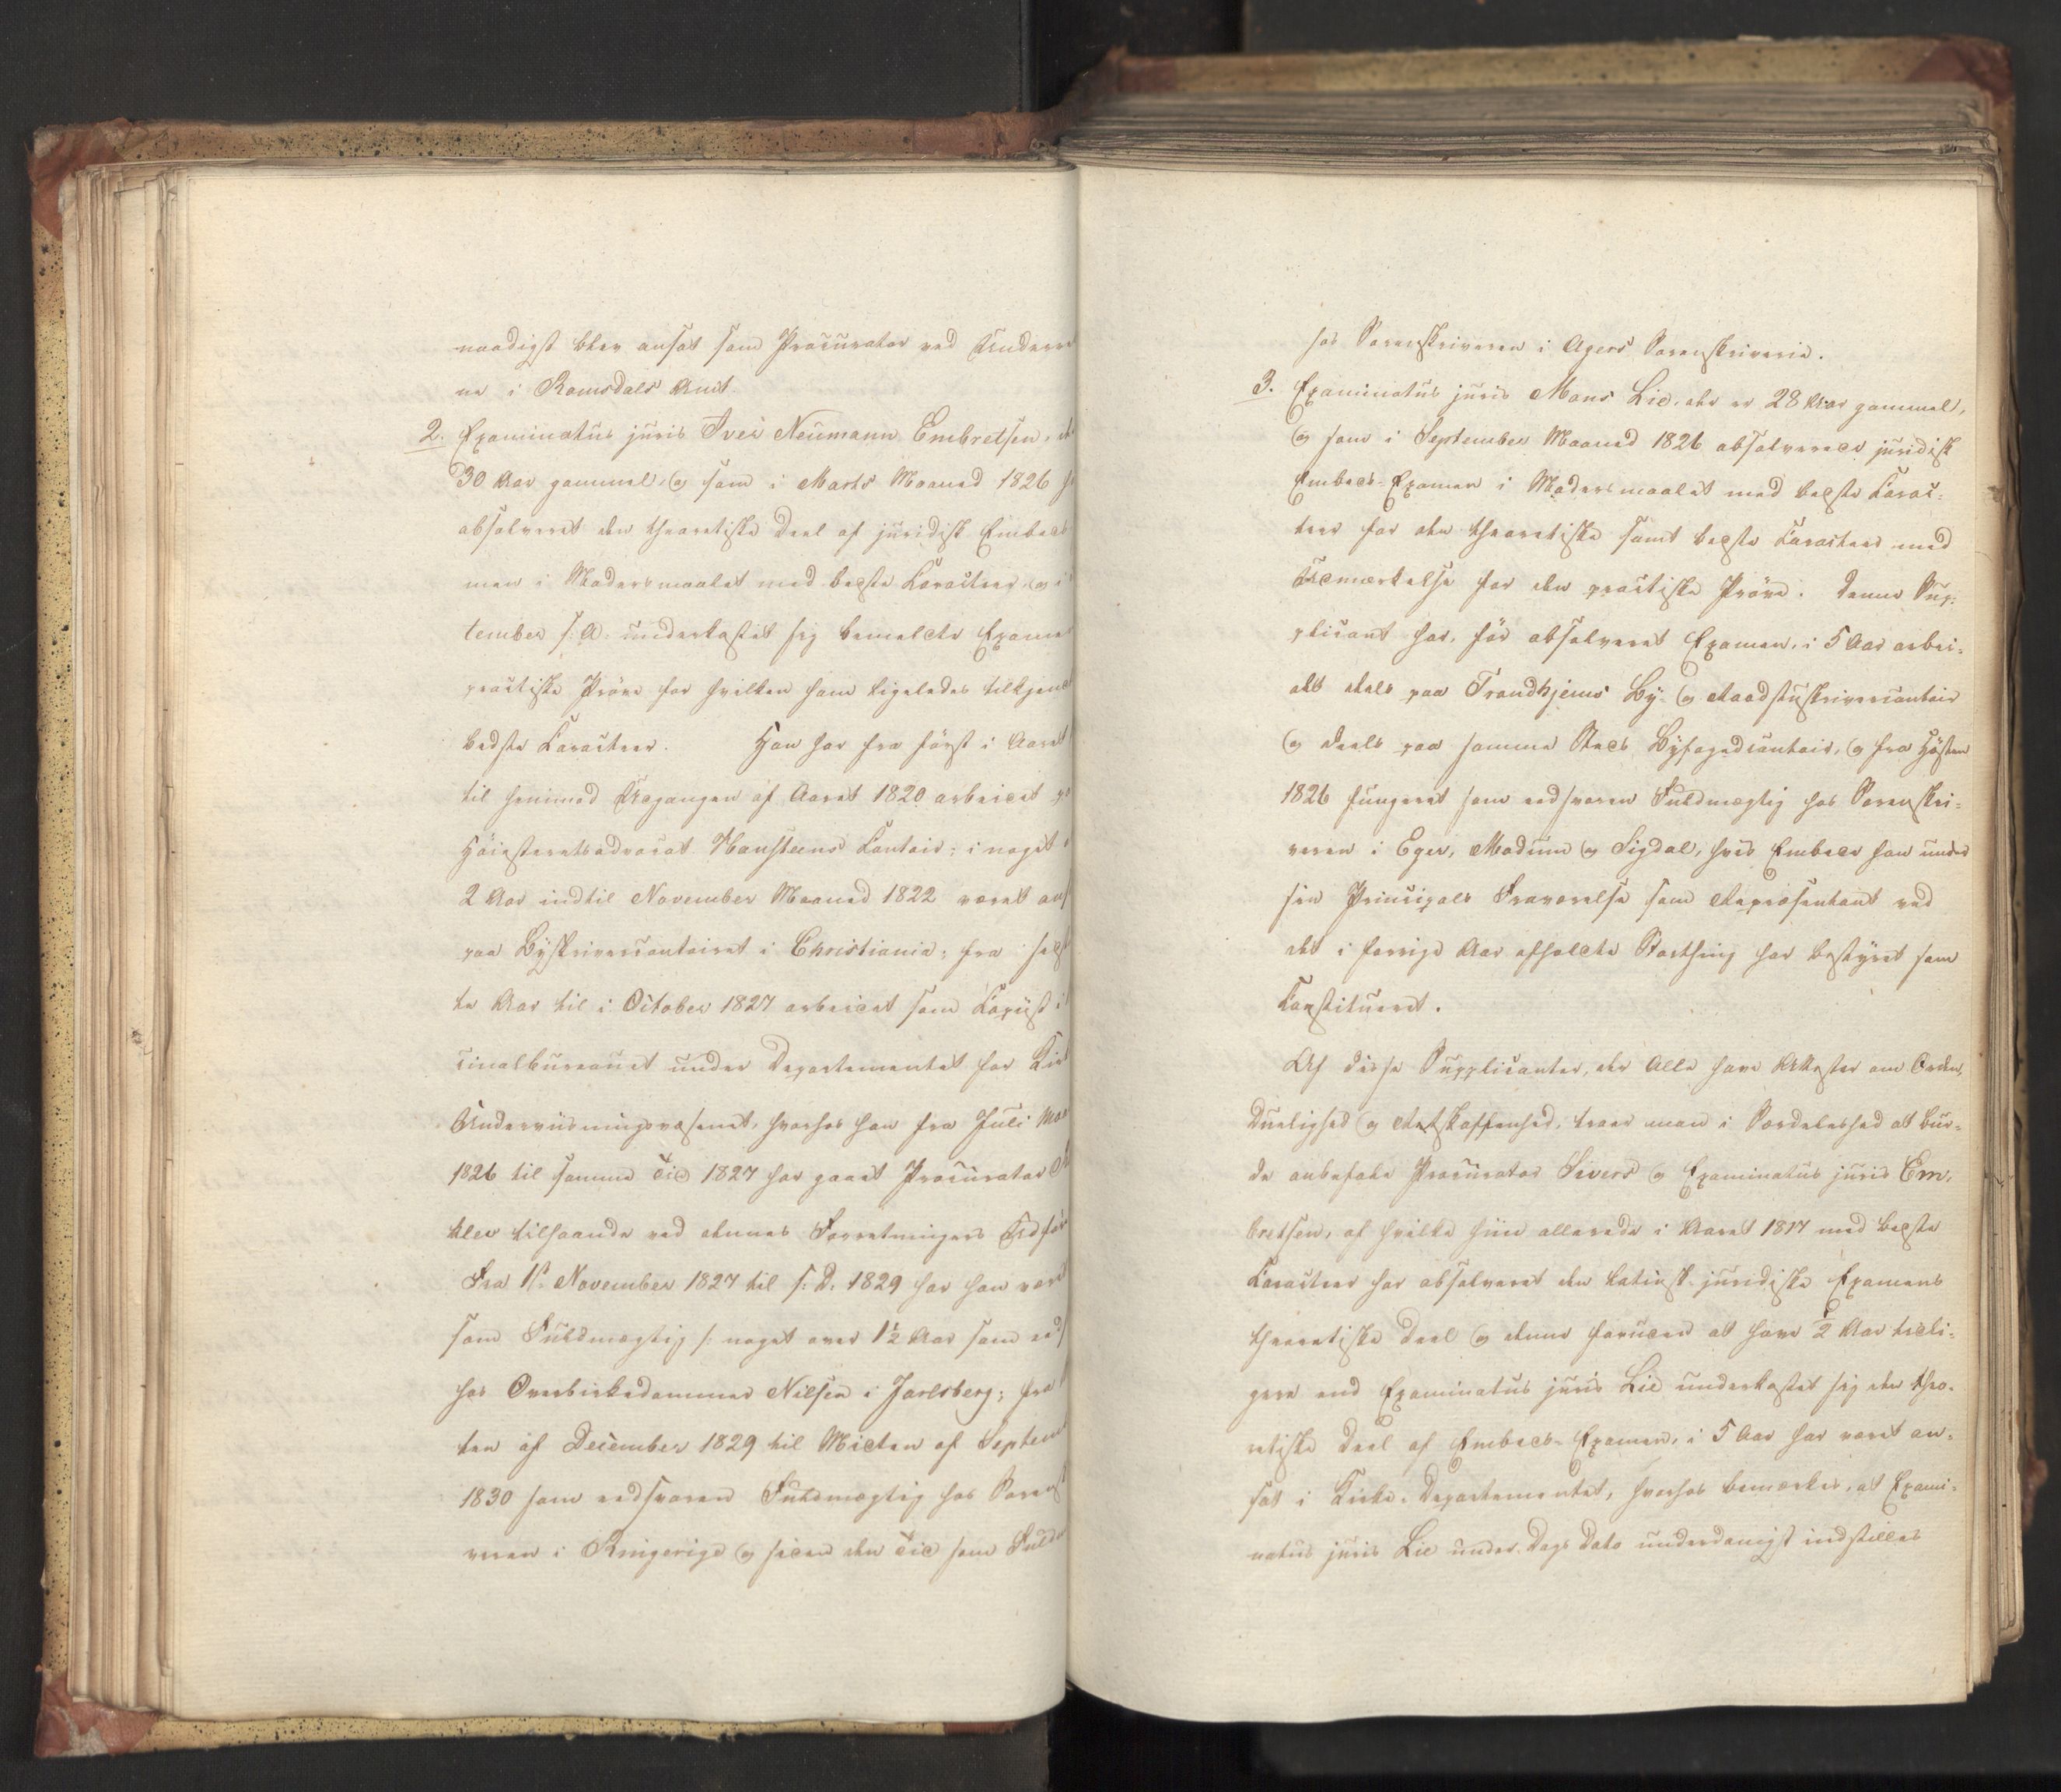 naadigst blev ansat som Procurator ved Underre
ne i Romsdals Amt.
2. Examinatus juris Iver Neumann Embretsen, de
30 Aar gammel, og som i Marts Maaned 1826 h
absolveret den theoretiske Deel af juridisk Embeds
men i Modersmaalet med bedste Caracteer, og i
tember s: A: underkastet sig bemeldte Examen
practiske Prøve for hvilken ham ligeledes tilkjend
bedste Caracteer. Han har fra først i Aaret
til henimod Udgangen af Aaret 1820 arbeidet p
Høiesteretsadvocat Hansteens Contoir; i noget
2 Aar indtil November Maaned 1822 været ans
paa Byskrivercontoiret i Christiania; fra sidst
te Aar til i October 1827 arbeidet som Copiist i
cinalbureauet under Departementet for Kir
Underviisningsvæsenet, hvorhos han fra Juli Maa
1826 til samme Tid 1827 har gaaet Procurator
klev tilhaande ved dennes Forretningers Udfør
Fra 1ste November 1827 til s: D: 1829 har han være
som Fuldmægtig /: noget over 1½ Aar som eds
hos Overbirkedommer Nilsen i Jarlsberg; fra
ten af December 1829 til Midten af Septem
1830 som edsvoren Fuldmægtig hos Sorens
veren i Ringerige og siden den Tid som Fuld
hos Sorenskriveren i Agers Sorenskriverie.
3. Examinatus juris Mons Lie, der er 28 Aar gammel,
og som i September Maaned 1826 absolverede juridisk
Embeds-Examen i Modersmaalet med bedste Carac-
teer for den theoretiske samt bedste Caracteer med
Udmærkelse for den practiske Prøve. Denne Sup-
plicant har, før absolveret Examen, i 5 Aar arbei-
det deels paa Trondhjems By- og Raadstuskrivercontoir
og deels paa samme Steds Byfogedcontoir, og fra Høsten
1826 fungeret som edsvoren Fuldmægtig hos Sorenskri-
veren i Eger, Modum og Sigdal, hvis Embede han under
sin Principals Fraværelse som Repræsentant ved
det i forrige Aar afholdte Storthing har bestyret som
Constitueret.
Af disse Supplicanter, der Alle have Attester om Orden,
Duelighed og Retskaffenhed, troer man i Særdeleshed at bur-
de anbefale Procurator Sivers og Examinatus juris Em-
bretsen, af hvilke hiin allerede i Aaret 1817 med bedste
Caracteer har absolveret den latinsk-juridiske Examens
theoretiske Deel og denne foruden at have ½ Aar tidli-
gere end Examinatus juris Lie underkastet sig den theo-
retiske Deel af Embeds-Examen, i 5 Aar har været an-
sat i Kirke-Departementet, hvorhos bemærkes, at Exami-
natus juris Lie under Dags Dato underdanigst indstilles